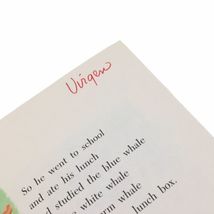 Virgen
So he went to school
and ate his lunch
d studied the blue whale
e white whale
rm whale
lunch box.